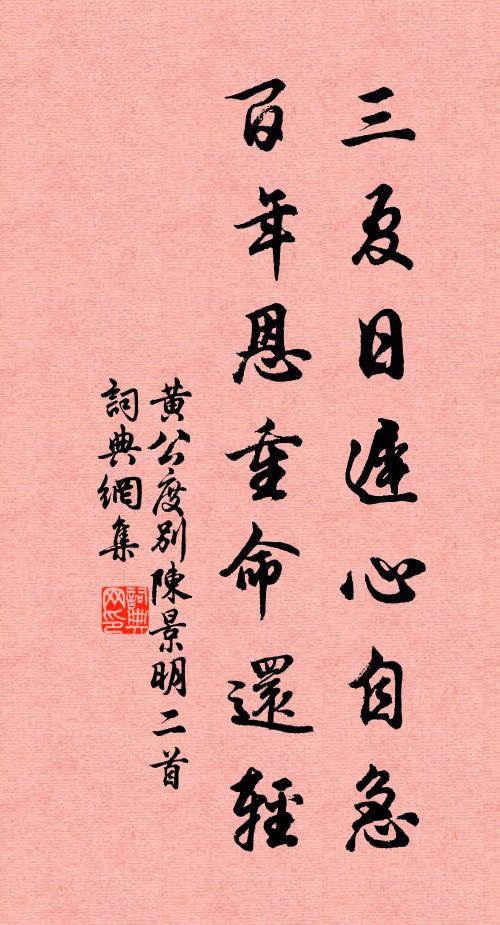 三夏日遲心自急
百年恩重命還輕
黄公度別陳景明二首
詞典網集
詞典网印